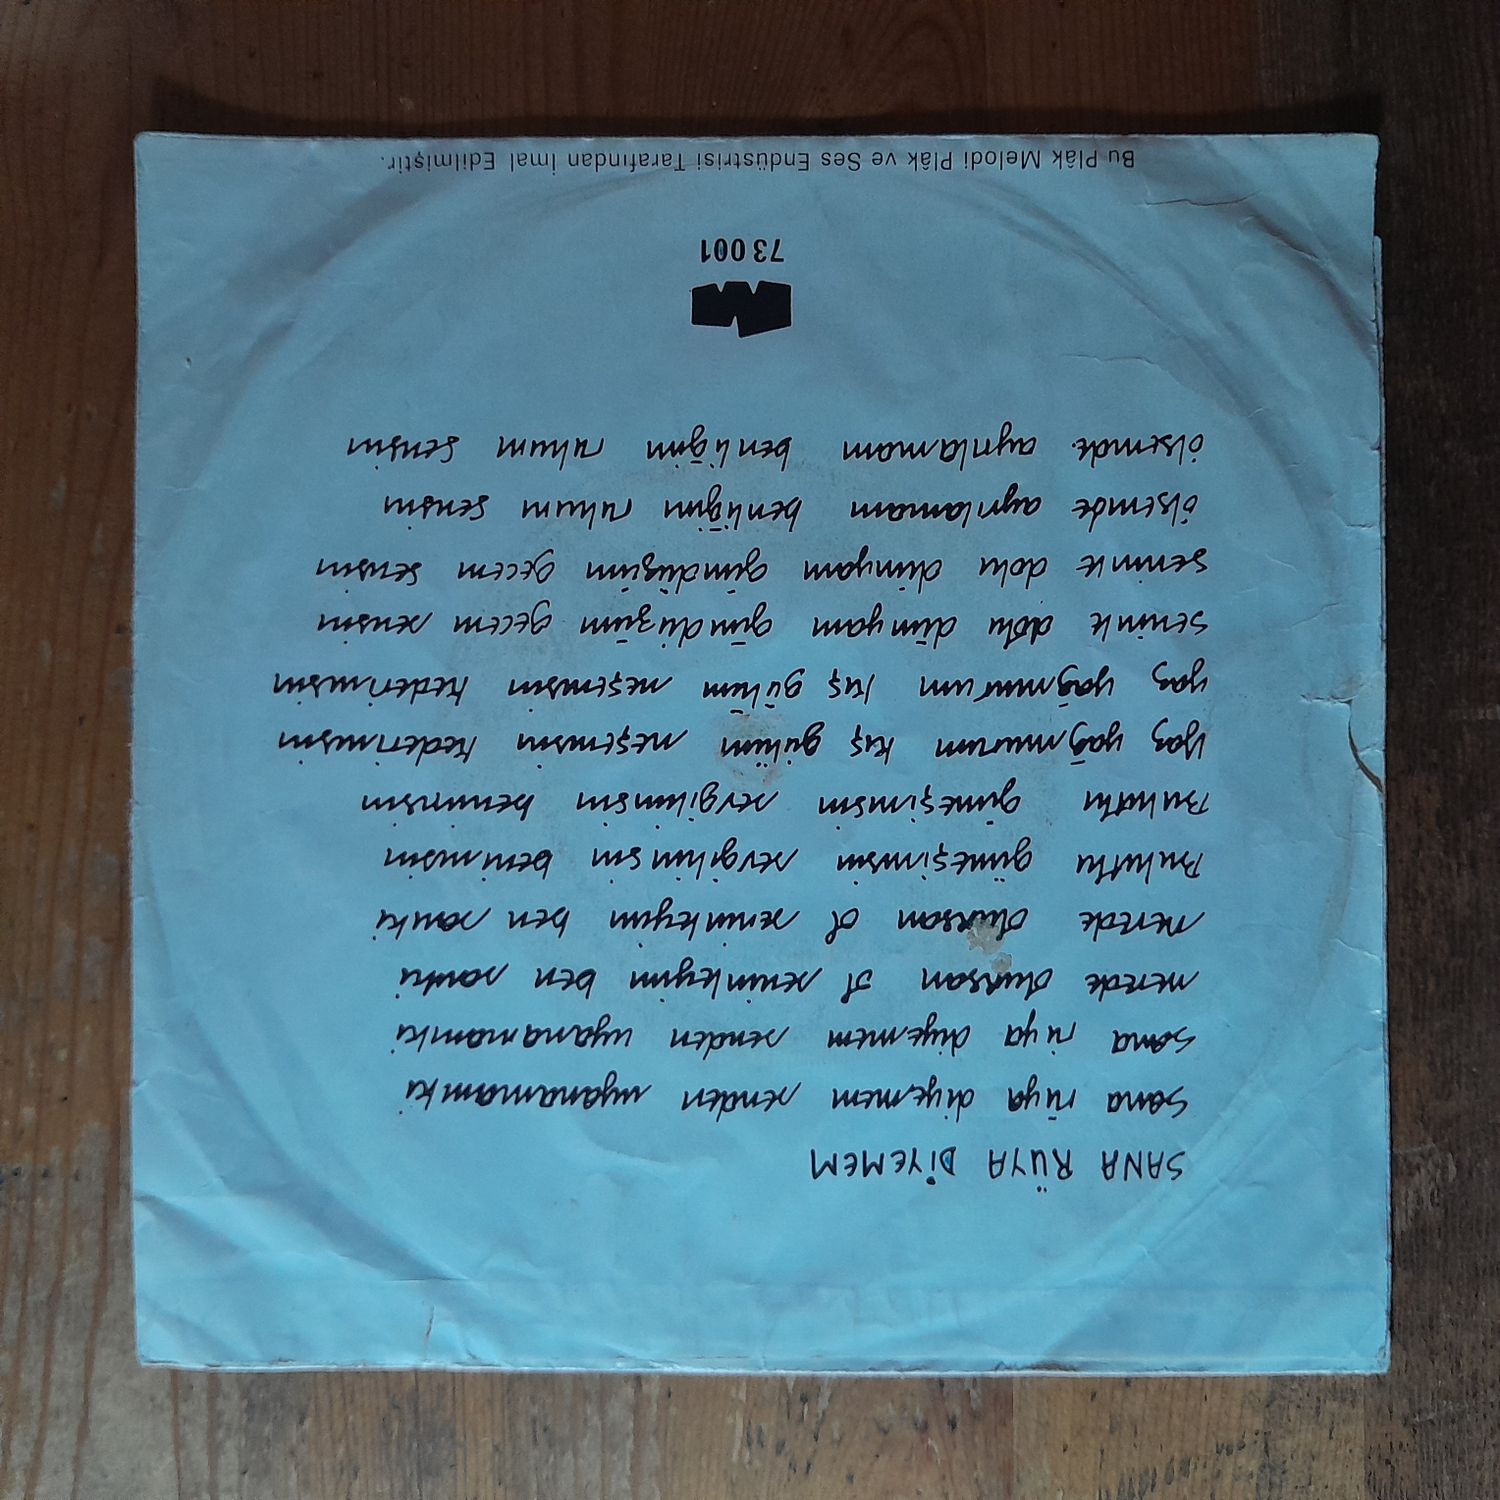 SANA RÜYA DİYEMEM
sana rüya diyemem senden uyanamamki
sana rüya diyemem senden uyanamamki
nerede olursan ol seninleyim ben sanki
nerede olursan ol seninleyim ben sanki
Bulutlu güneşimsin sevgilimsin benimsin
Bulutlu güneşimsin sevgilimsin benimsin
yaz yağmurum kış gülüm neşemsin kederimsin
yaz yağmurum kış gülüm neşemsin kederimsin
seninle dolu dünyam gündüzüm gecem sensin
seninle dolu dünyam gündüzüm gecem sensin
ölsemde ayrılamam benliğim ruhum sensin
ölsemde ayrılamam benliğim ruhum sensin
73 001
Bu Plâk Melodi Plâk ve Ses Endüstrisi Tarafından İmal Edilmiştir.